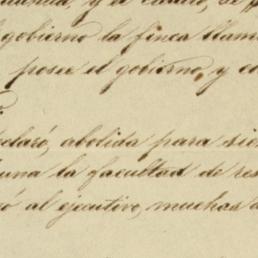 y el
gobierno la finca llam
posee el gobierno, y co
declaró, abolida para sie
una la facultad de res
ó al ejecutivo, muchas